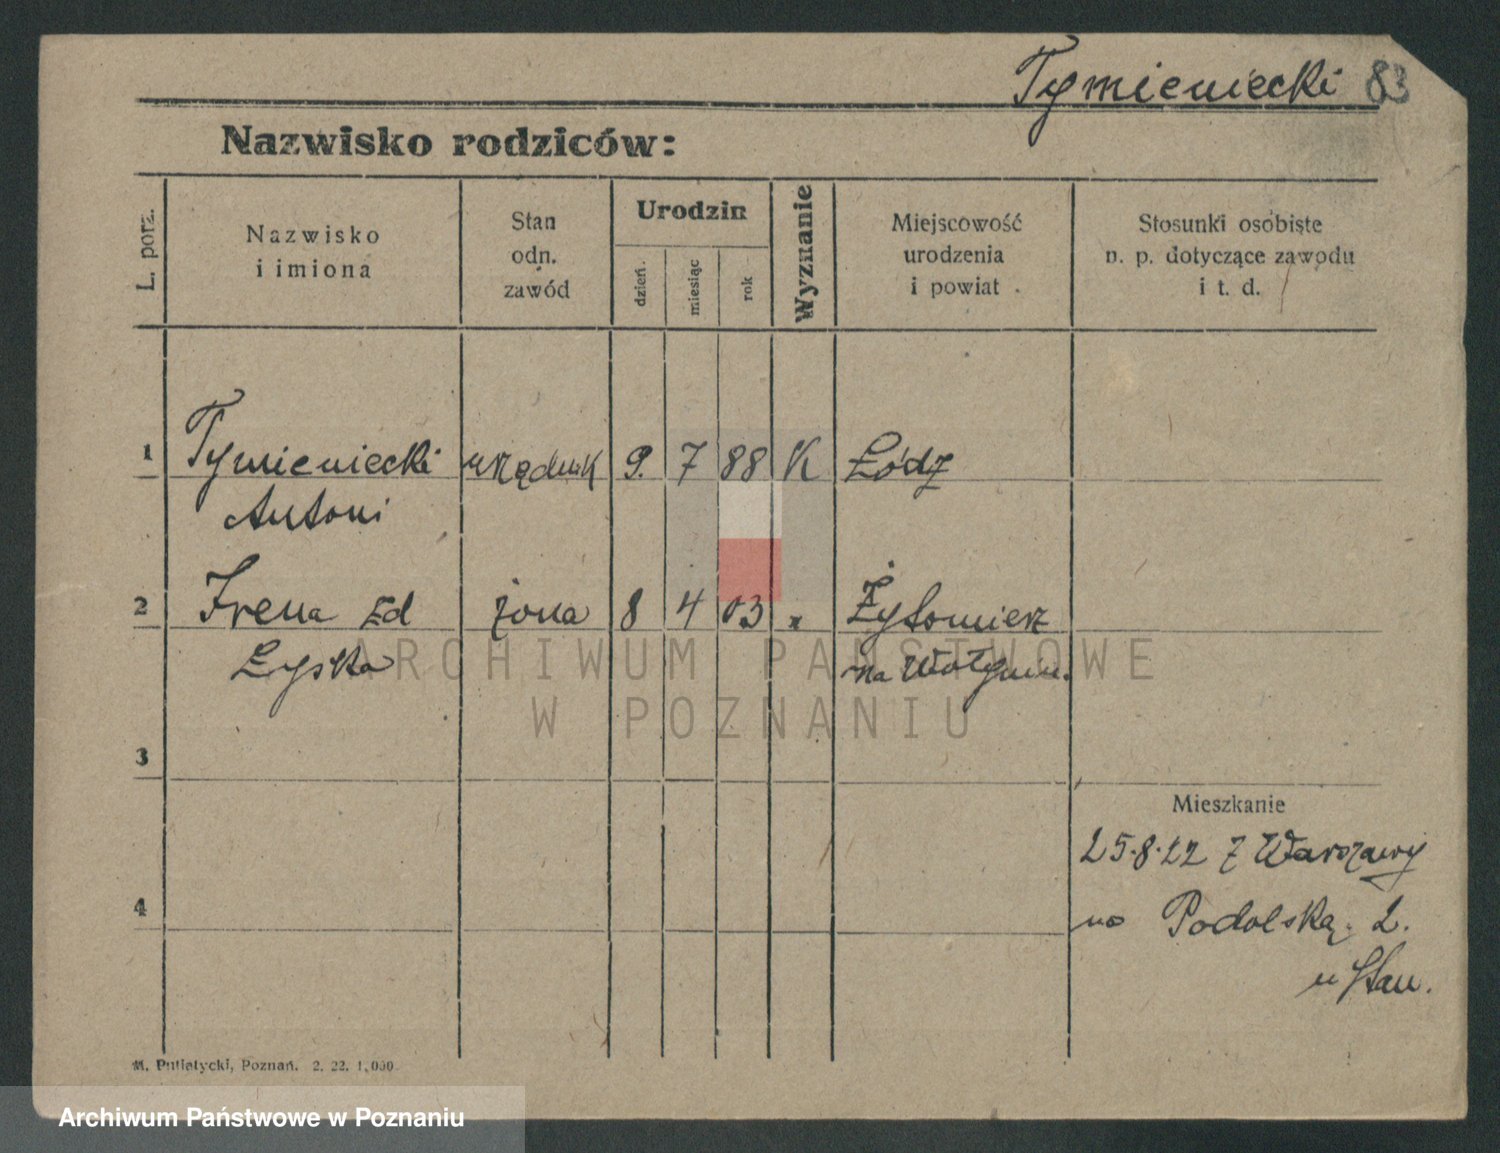 Tymieniecki 83
Nazwisko rodziców:
L. porz.
Nazwisko
i imiona
Stan
odn.
zawód
Urodzin
dzień
miesiąc
rok
Wyznanie
Miejscowość
urodzenia
i powiat
Stosunki osobiste
n. p. dotyczące zawodu
i t. d.
1 Tymieniecki urzędnik 9. 7 88 K Łódź
Antoni
2 Irena zd żona 8 4 03 " Żytomierz
Łyska na Wołyniu.
ARCHIWUM PAŃSTWOWE
W POZNANIU
3
Mieszkanie
25.8.22 z Warszawy
4
na Podolską 2.
u Stan.
M. Putiatycki, Poznań. 2. 22. 1,000
Archiwum Państwowe w Poznaniu